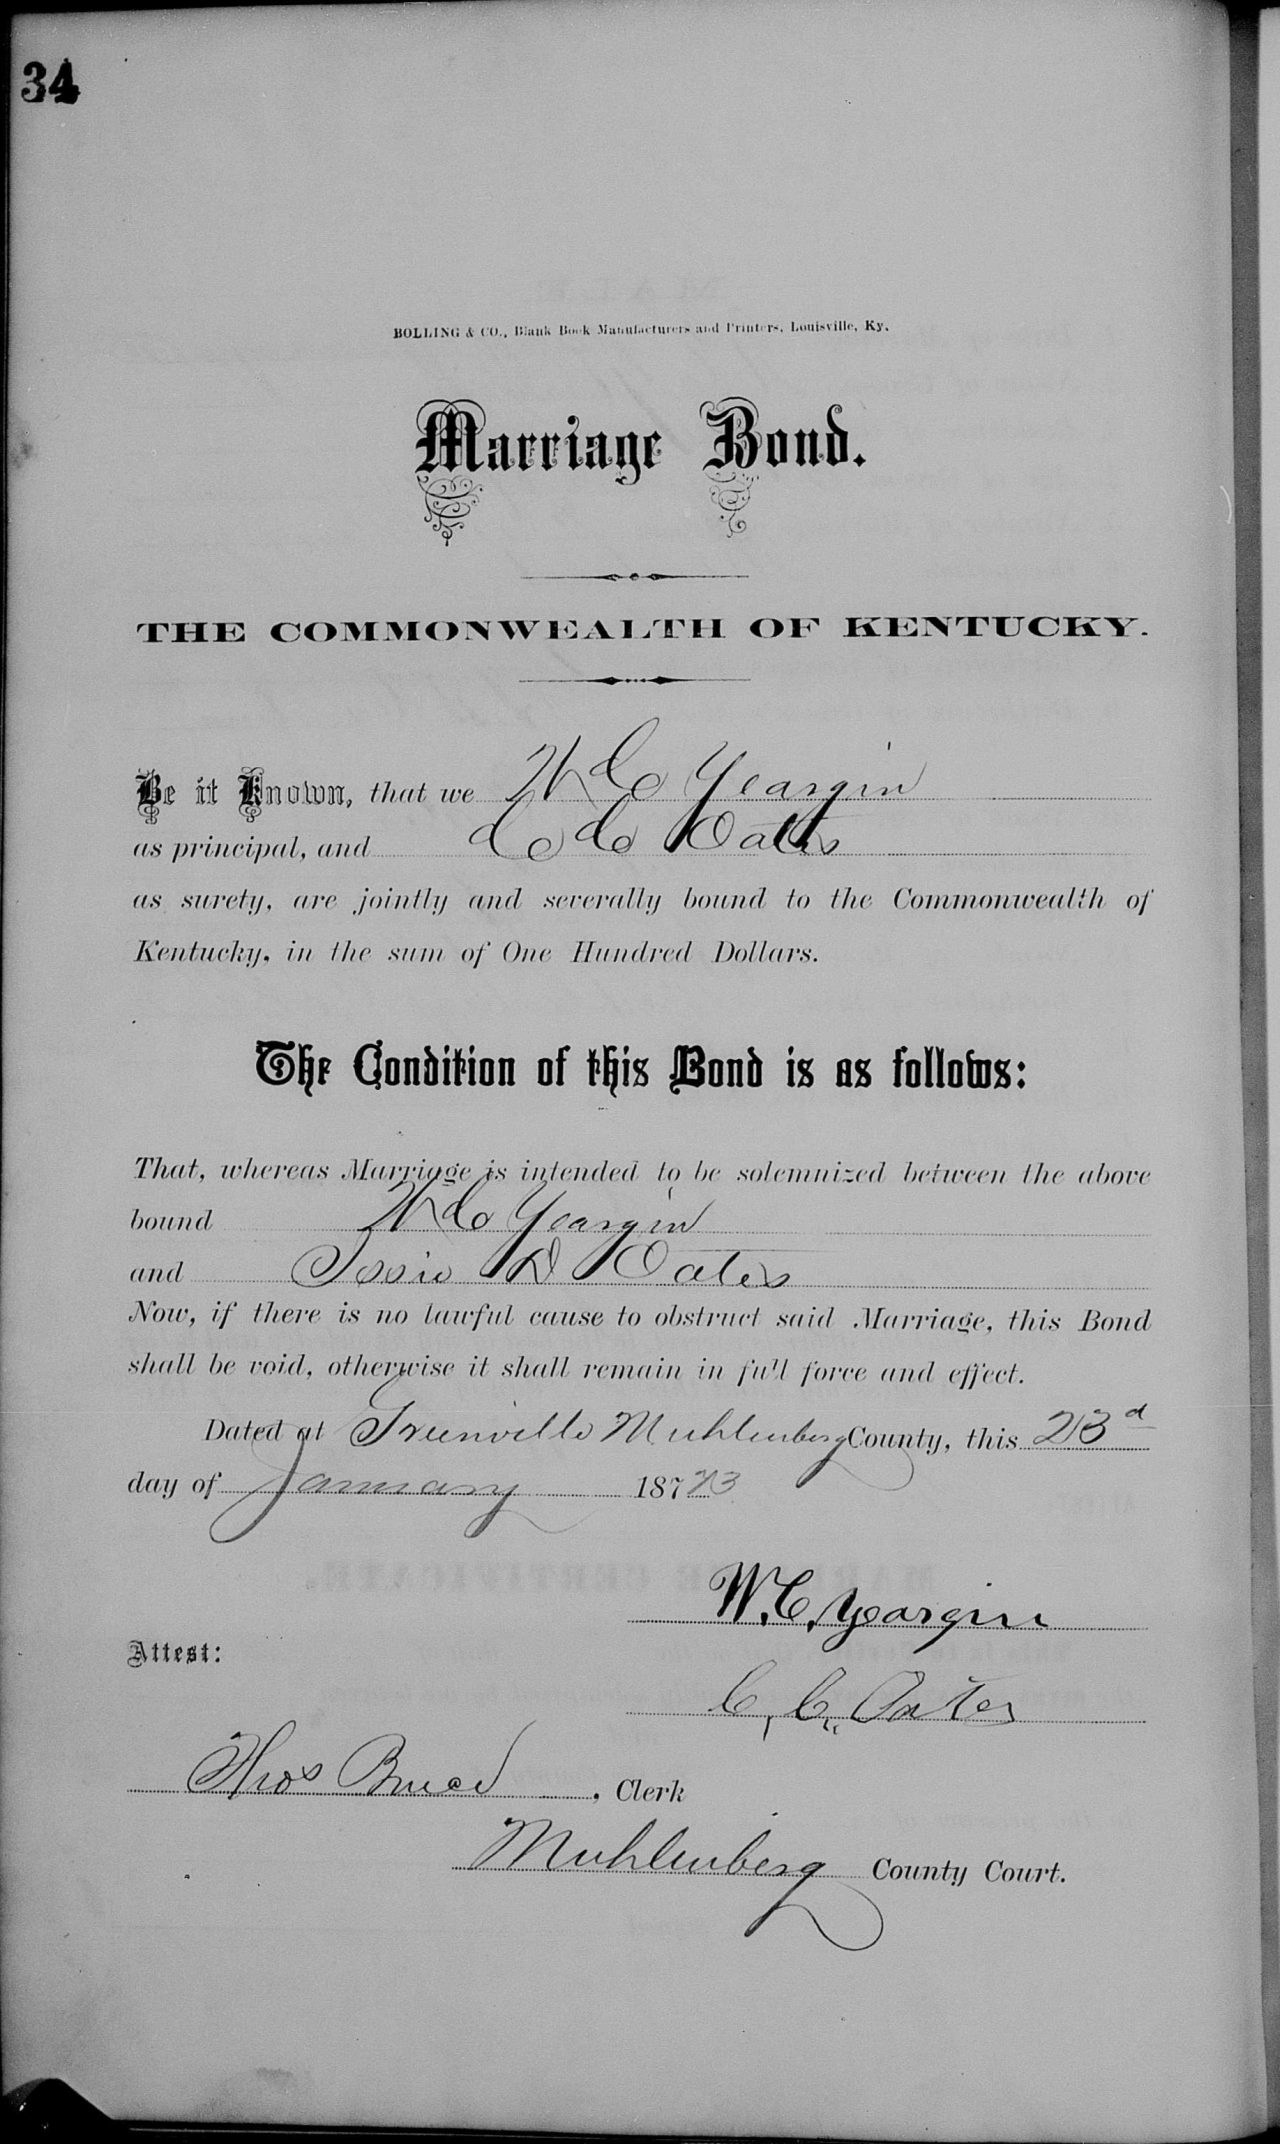 34
BOLLING & CO., Blank Book Manufacturers and Printers, Louisville, Ky.
Marriage Bond.
THE COMMONWEALTH OF KENTUCKY.
Be it Known, that we W C Yeargin
as principal, and C C Oates
as surety, are jointly and severally bound to the Commonwealth of
Kentucky, in the sum of One Hundred Dollars.
The Condition of this Bond is as follows:
That, whereas Marriage is intended to be solemnized between the above
bound W C Yeargin
and D Oates
Now, if there is no lawful cause to obstruct said Marriage, this Bond
shall be void, otherwise it shall remain in full force and effect.
Dated at Greenville Muhlenberg County, this 23d
day of January 187
W. C. Yeargin
Attest:
C. C. Oates
Thos , Clerk
Muhlenberg County Court.